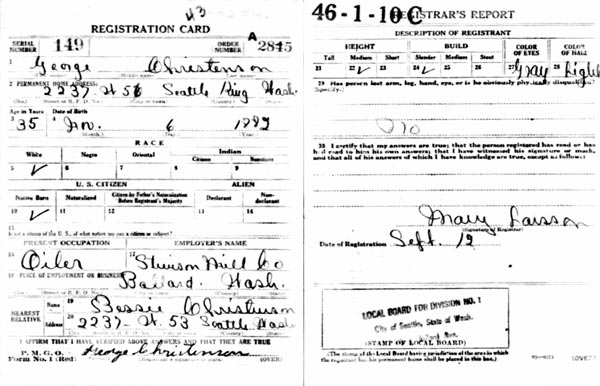 43
REGISTRATION CARD
SERIAL NUMBER 149 ORDER NUMBER A 2845
1 George Christenson
2 PERMANENT HOME ADDRESS:
2237 W 58 Seattle King Wash.
Age in Years Date of Birth
35 6
RACE
White Negro Oriental Indian
Citizen Noncitizen
5 ✓ 6 7 8 9
U. S. CITIZEN ALIEN
Native Born Naturalized Citizen by Father's Naturalization Before Registrant's Majority Declarant Non-declarant
10 ✓ 11 12 13 14
15
If not a citizen of the U. S., of what nation are you a citizen or subject?
PRESENT OCCUPATION EMPLOYER'S NAME
16 Oiler 17 Stimson Mill Co
18 PLACE OF EMPLOYMENT OR BUSINESS
Ballard. Wash.
NEAREST RELATIVE
Name 19 Bessie Christenson
Address 20 2237 - W. 58 Seattle Wash
I AFFIRM THAT I HAVE VERIFIED ABOVE ANSWERS AND THAT THEY ARE TRUE
P. M. G. O.
Form No. 1 (Red) George Christenson
(OVER)
46-1-10 C REGISTRAR'S REPORT
DESCRIPTION OF REGISTRANT
HEIGHT BUILD COLOR OF EYES COLOR OF HAIR
Tall Medium Short Slender Medium Stout
21 22 ✓ 23 24 ✓ 25 26 27 Gray 28 Light
29 Has person lost arm, leg, hand, eye, or is he obviously physically disqualified?
(Specify.)
No
30 I certify that my answers are true; that the person registered has read or has
had read to him his own answers; that I have witnessed his signature or mark,
and that all of his answers of which I have knowledge are true, except as follows:
Mary Larsson
(Signature of Registrar)
Date of Registration Sept. 12
LOCAL BOARD FOR DIVISION NO. 1
City of Seattle, State of Wash.
(STAMP OF LOCAL BOARD)
(The stamp of the Local Board having jurisdiction of the area in which
the registrant has his permanent home shall be placed in this box.)
(OVER)